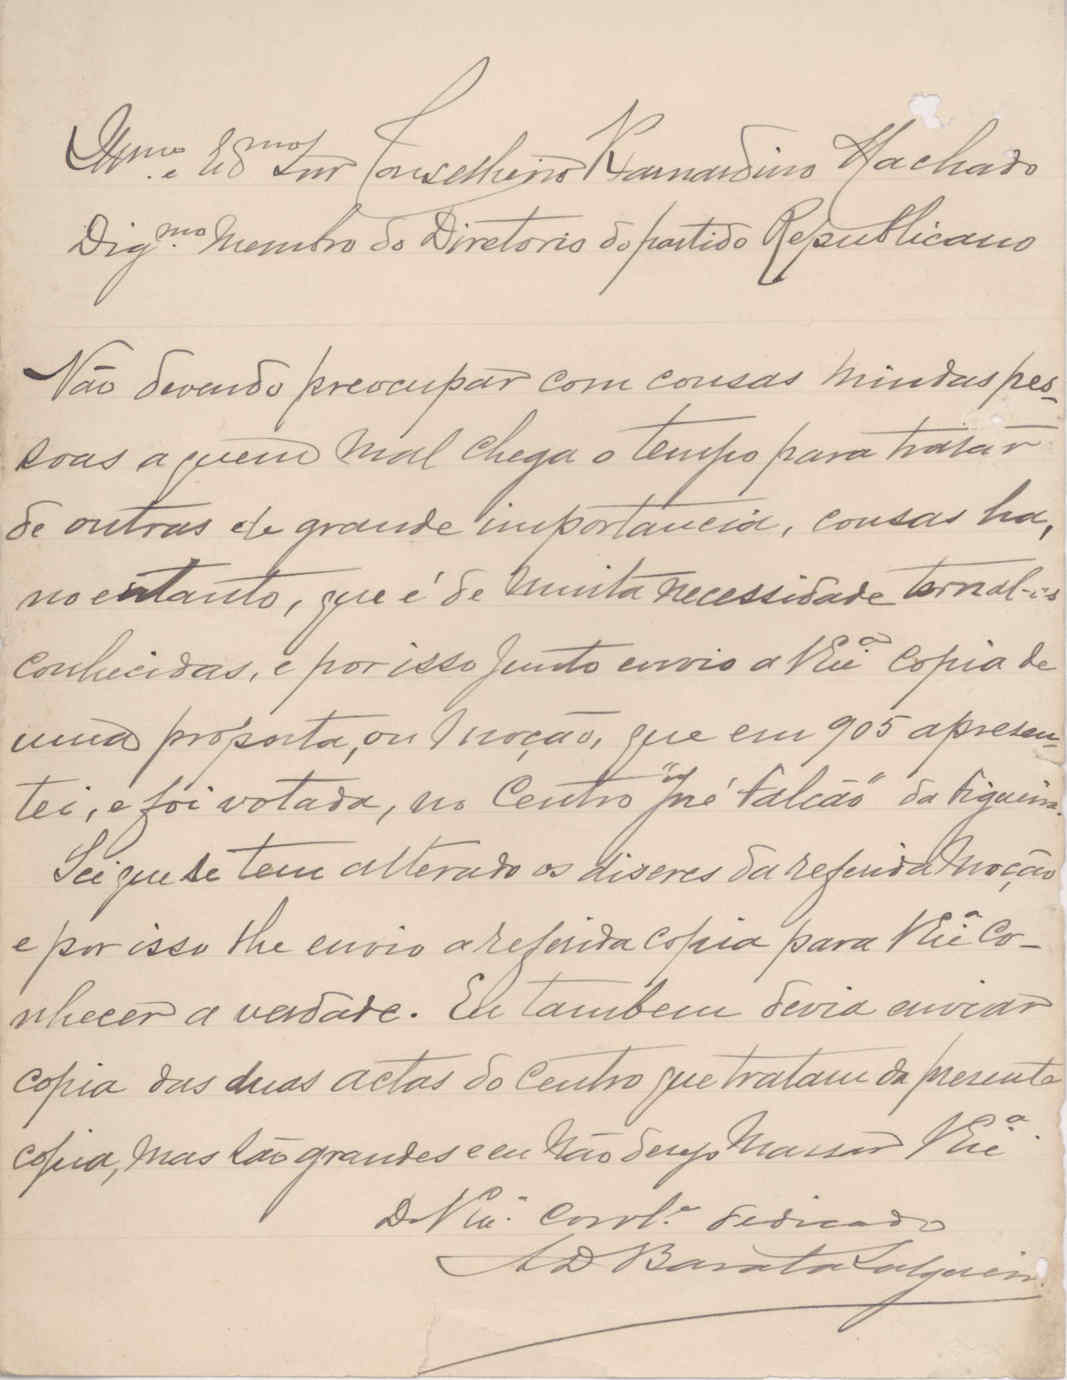 Illmo. e Exmo Snr Conselheiro Barnardino Machado
Digmo. Membro do Diretorio do partido Republicano
Não devendo preocupar com cousas miudas pes-
soas a quem mal chega o tempo para tratar
de outras de grande importancia, cousas ha,
no entanto, que é de muita necessidade tornal-as
conhecidas, e por isso junto envio a VExiª copia de
uma proposta, ou moção, que em 905 apresen-
tei, e foi votada, no Centro "José Falcão" da Figueira.
Sei que se tem alterado os diseres da referida moção
e por isso lhe envio a referida copia para VExiª co-
nhecer a verdade. Eu tambem devia enviar
copia das duas actas do Centro que tratam da presente
copia, mas são grandes e eu não desejo massar VExiª.
De VExiª. Corrlº dedicado
A D Barata Salgueiro.